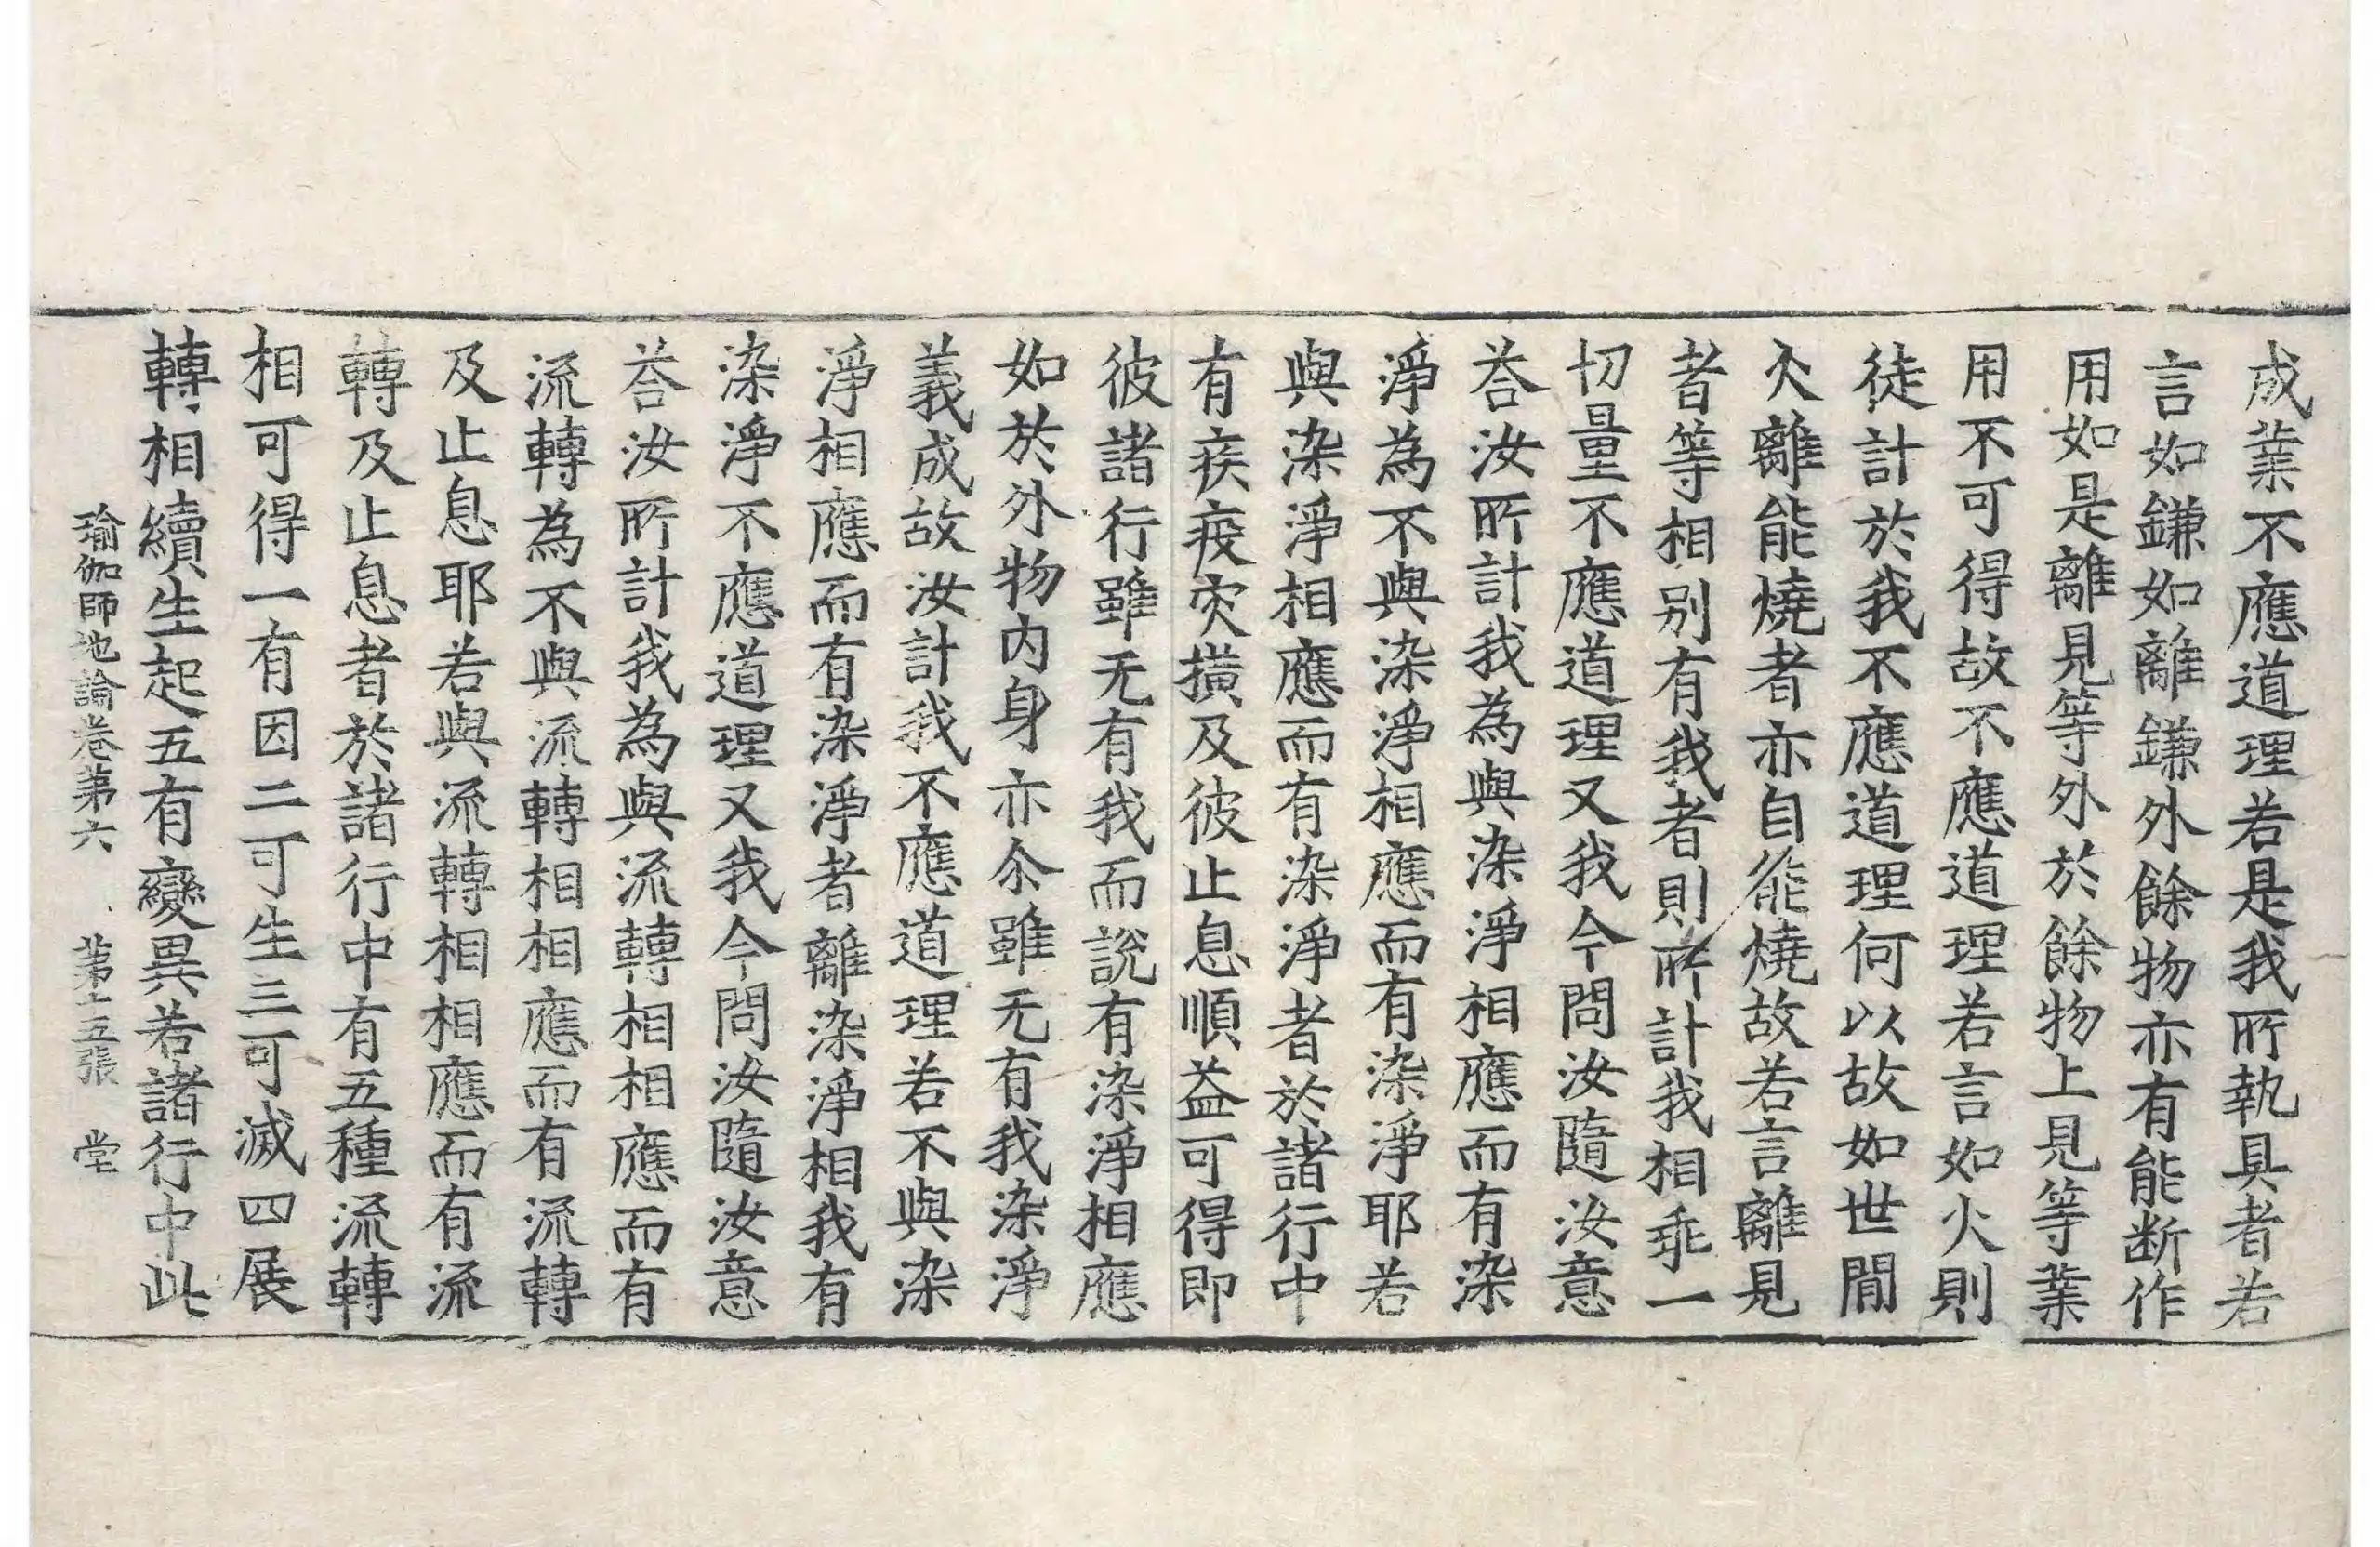 成業不應道理若是我所執具者若
言如鎌如離鎌外餘物亦有能断作
用如是離見等外於餘物上見等業
用不可得故不應道理若言如火則
徒計於我不應道理何以故如世間
火離能燒者亦自能燒故若言離見
者等相别有我者則所計我相乖一
切量不應道理又我今問汝隨汝意
荅汝所計我為與染淨相應而有染
淨為不與染淨相應而有染淨耶若
與染淨相應而有染淨者於諸行中
有疾疫灾横及彼止息順益可得即
彼諸行雖无有我而說有染淨相應
如於外物内身亦尒雖无有我染淨
義成故汝計我不應道理若不與染
淨相應而有染淨者離染淨相我有
染淨不應道理又我今問汝隨汝意
荅汝所計我為與流轉相相應而有
流轉為不與流轉相相應而有流轉
及止息耶若與流轉相相應而有流
轉及止息者於諸行中有五種流轉
相可得一有因二可生三可滅四展
轉相續生起五有變異若諸行中此
瑜伽師地論卷第六 第十五張 堂